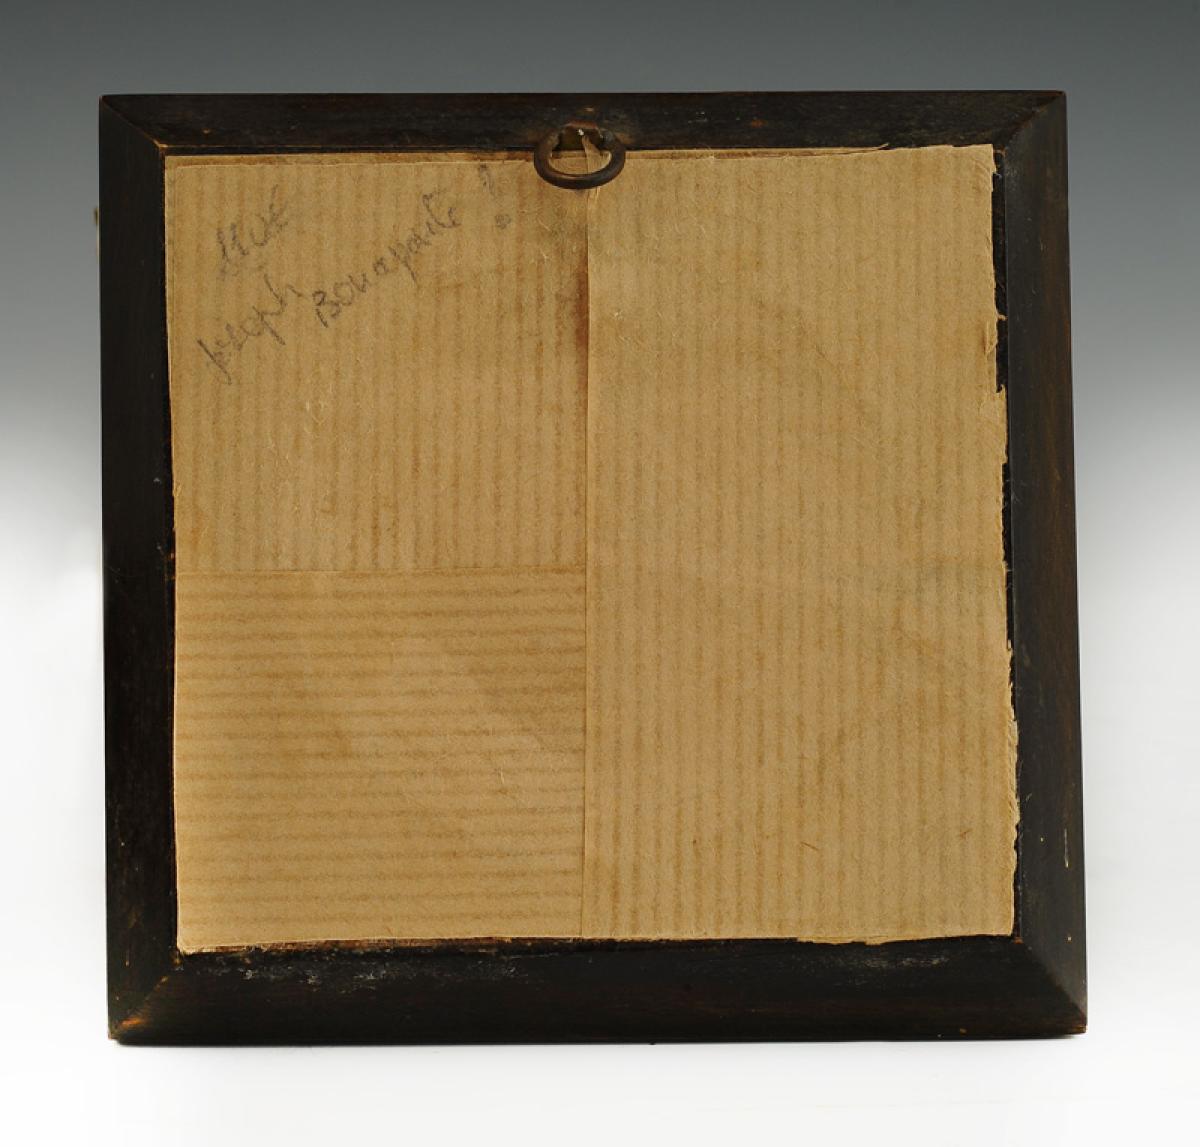 Mme
Joseph Bonaparte !